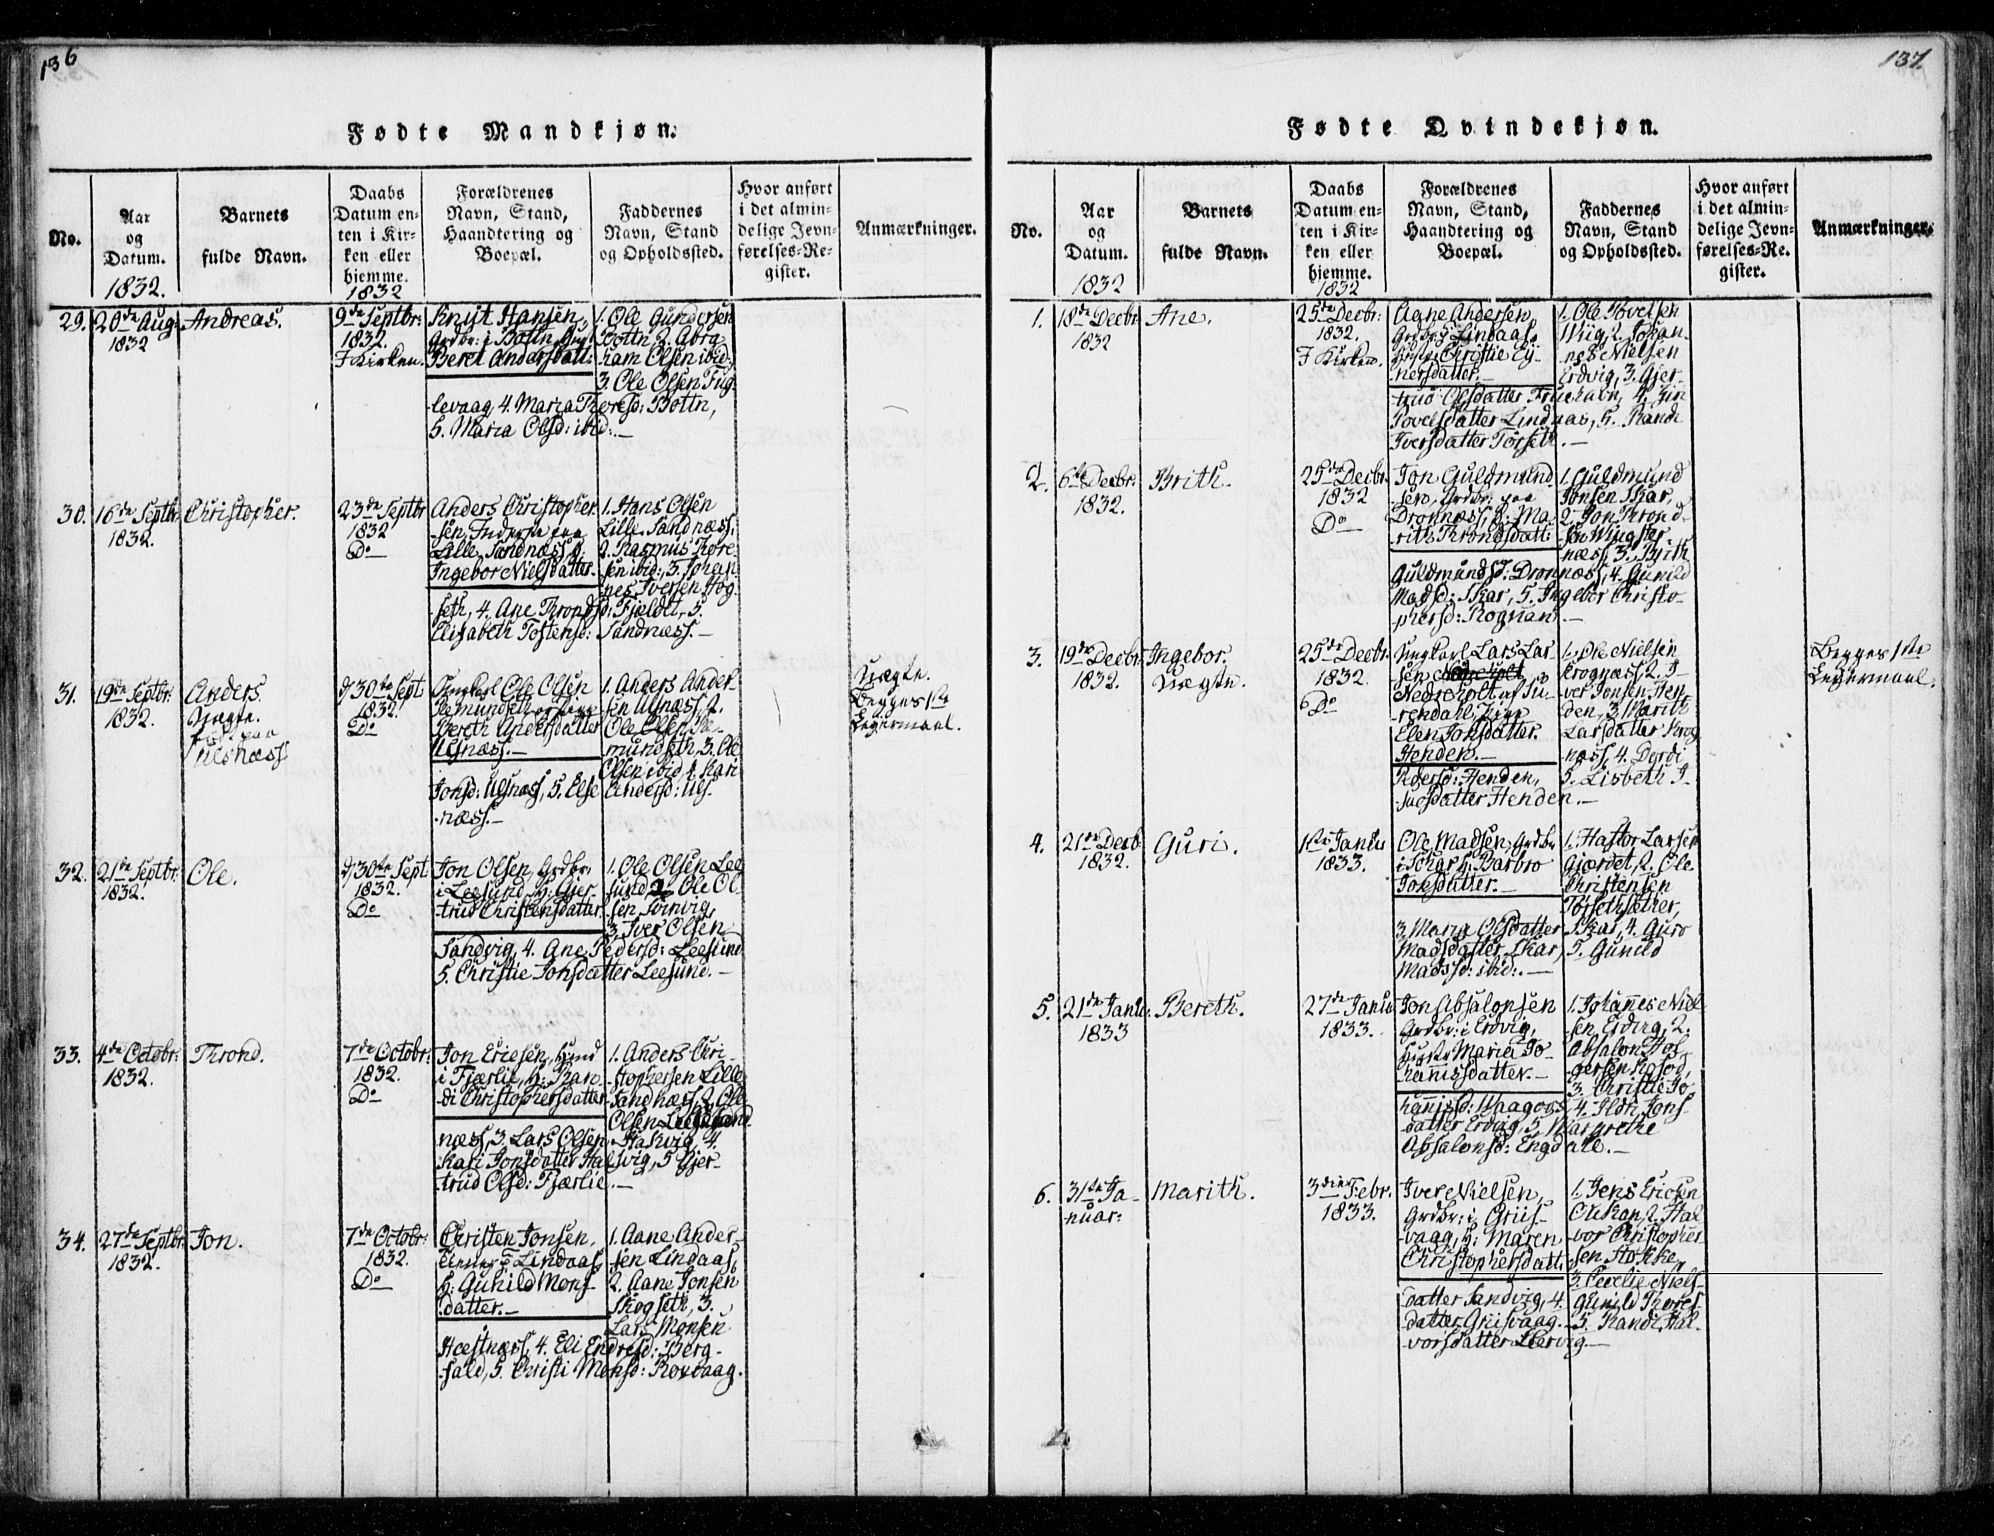 136
Fødte Mandkjøn.
No.
Aar
og
Datum.
1832.
Barnets
fulde Navn.
Daabs
Datum en-
ten i Kir-
ken eller
hjemme.
1832
Forældrenes
Navn, Stand,
Haandtering og
Boepæl.
Faddernes
Navn, Stand
og Opholdssted.
Hvor anført
i det almin-
delige Jevn-
førelses-Re-
gister.
Anmærkninger.
29.
20de Aug:
1832
Andreas.
9de Septbr:
1832.
I Kirken.
Knyt Hansen,
Grdbr: i Bottn
Beret Andersdatt:
1. Ole Gundersen
Bottn 2. Abra
ham Olsen ibid:
3. Ole Olsen Fug
levaag, 4. Maria Thoresd: Bottn,
5. Maria Olsd: ibid:.—
30.
16de Septbr.
1832.
Christopher.
23de Septbr
1832
Do
Anders Christopher
sen, Inderst paa
Lille Sandnæss h:
Ingebor Nielsdatter.
1. Hans Olsen
Lille Sandnæss:
2. Rasmus Thore
sen ibid:, 3. Johan
nes Iversen Hog
seth, 4. Ane Throndsd: Fjeldet, 5
Elisabeth Tostensd: Sandnæss.—
31.
19de Septbr:
1832.
Anders.
Uægte.
født paa
Ulsnæss
d 30te Sept
1832.
Do
Ungkarl Ole Olsen
Remundseth og Pige
Bereth Andersdatter
Ulsnæss.—
1. Anders Ander-
sen Ulsnæs, 2.
Ole Olsen Re-
mundseth 3. Ole
Olsen ibid, 4. Kari
Jonsd: Ulsnæss, 5. Else Andersd: Uls-
næss.—
Uægte.
Begges 1ste
Leiermaal.
32.
21de Septbr:
1832.
Ole.
d 30te Sept
1832.
Do
Jon Olsen, Grdbr:
i Leesund, h: Gjer
trud Christensdatter
1. Ole Olsen Lee
sund 2. Ole Ol
sen Sørvig,
3. Iver Olsen
Sandvig, 4. Ane Pedersd: Leesund
5. Christie Jonsdatter Leesund.—
33.
4de Octobr:
1832.
Thrond.
7de Octobr:
1832.
Do
Jon Ericsen, Hmd
i Fjærlie, h: Ran
di Christophersdatter
1. Anders Chri-
stophersen Lille
Sandnæss, 2. Ole
Olsen
næss, 3. Lars Olsen Halsvig, 4.
Kari Jonsdatter Halsvig, 5 Gjer-
trud Olsd: Fjærlie.—
34.
27de Septbr:
1832.
Jon.
7de Octobr:
1832.
Do
Christen Jonsen,
Lindaas,
h: Guhild Mons
datter.—
1. Aane Ander-
sen Lindaas,
2. Aane Jonsen
Skogseth, 3.
Lars Monsen
Hæstnæss, 4. Eli Endresd: Berg-
fald, 5. Christi Monsd: Rovaag.
137.
Fødte Qvindekjøn.
No.
Aar
og
Datum.
1832
Barnets
fulde Navn.
Daabs
Datum en-
ten i Kir-
ken eller
hjemme.
1832
Forældrenes
Navn, Stand,
Haandtering og
Boepæl.
Faddernes
Navn, Stand
og Opholdssted.
Hvor anført
i det almin-
delige Jevn-
førelses-Re-
gister.
Anmærkninger.
1.
18de Decbr:
1832
Ane.
25de Decbr:
1832.
I Kirken.
Aane Andersen,
Grdbr: i Lindaas,
Hustr: Christie Ey-
nersdatter.—
1. Ole Povelsen
Wiig, 2. Johan-
nes Nielsen
Erdvig, 3. Gjer-
trud Olsdatter Fruehavn, 4. Giri
Povelsdatter Lindnæs, 5. Randi
Iversdatter Torseth.—
2.
6te Decbr:
1832.
Brith.
25de Decbr:
1832
Do
Jon Guldmund
sen, Grdbr: paa
Dronnæss, h: Ma-
rith Throndsdatt:
1. Guldmund
Jonsen Skar,
2. Jon Thrond-
sen Wingster-
næss 3. Brith
Guldmundsd: Dronnæss, 4. Gunild
Madsd: Skar, 5. Ingebor Christo-
phersd: Rognan.—
3.
19de Decbr:
1832.
Ingebor.
Uægte.
25de Decbr:
1832.
Do
Ungkarl Lars Lar-
sen
Nedreholt af Su-
rendahl, Pige
Elen Jonsdatter.
Henden.—
1. Ole Nielsen
Krognæss, 2. I-
ver Jonsen Hen
den, 3. Marith
Larsdatter Krog
næss, 4. Dordi
Pedersd: Henden, 5. Lisbeth I-
sacsdatter Henden.—
Begges 1ste
Leiermaal.
4.
21de Decb:
1832.
Guri.
1ste Janu:
1833.
Ole Madsen, Grdbr
i Schar, h: Barbro
Jonsdatter.—
1. Haftor Larsen
Gjærdet, 2. Ole
Christensen
Torsethsæther,
3. Maria Olsdatter Skar, 4. Guro
Madsdatter Skar, 5. Gunild
Madsd: ibid:.—
5.
21de Janu:
1833
Bereth.
27de Janu:
1833.
Jon Absalonsen
Grdbr: i Erdvig,
Hustr: Maria Jo-
hannisdatter.—
1. Johannes Niel
sen Erdvig, 2.
Absalon Hol-
gersen
3. Christie Jo
hannisd: Waagos, 4. Ildri Jons
datter Erdvig, 5. Margrethe
Absalonsd: Engdale.—
6.
31te Ja-
nuar:
Marith.
3die Febr.
1833.
Iver Nielsen,
Grdbr: i Griis-
vaag, h: Maren
Christophersdatt:
1. Jens Ericsen
2. Hal
vor Christopher
sen Stokke,
3. Cecelie Niels-
datter Sandvig, 4. Gunild Thores
datter Griisvaag.— 5. Randi Hal-
vorsdatter Leervig.—